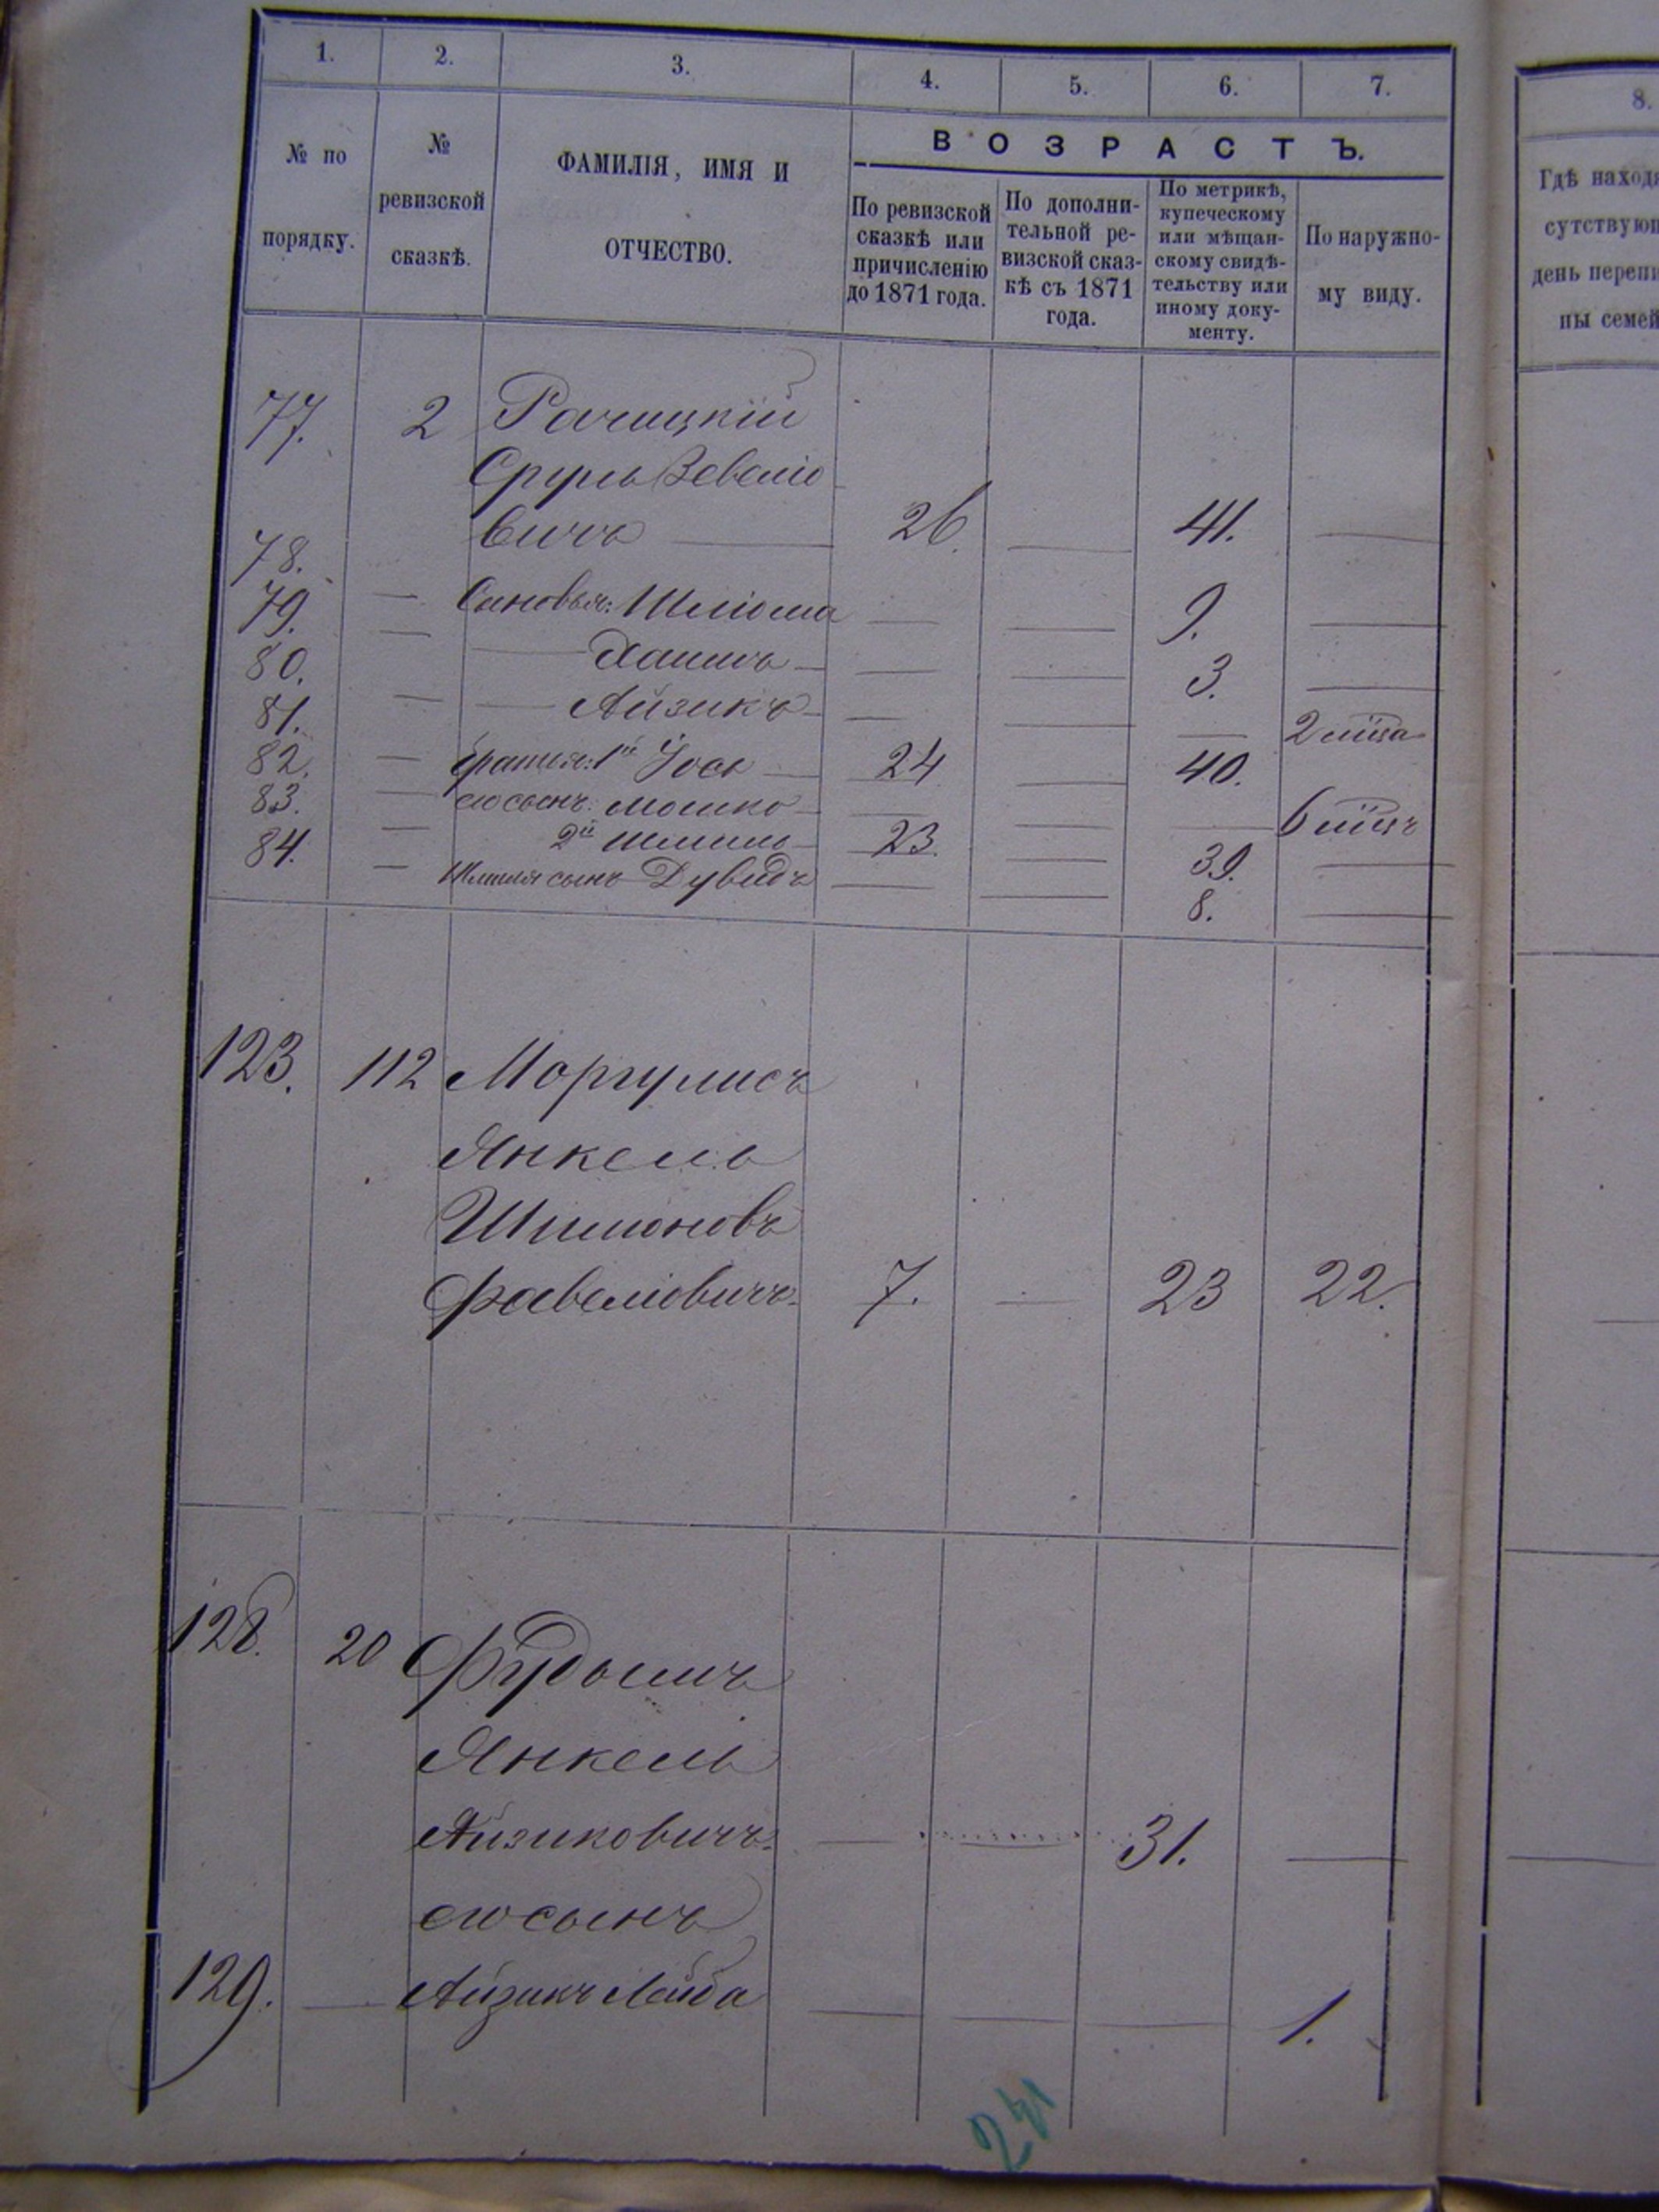 1. 2. 3. 4. 5. 6. 7. 8.
ВОЗРАСТЪ.
№ по порядку.
№ ревизской сказкѣ.
ФАМИЛІЯ, ИМЯ И ОТЧЕСТВО.
По ревизской сказкѣ или причисленію до 1871 года.
По дополнительной ревизской сказкѣ съ 1871 года.
По метрикѣ, купеческому или мѣщанскому свидѣтельству или иному документу.
По наружному виду.
Гдѣ наход
сутствующ
день переп
пы семей
77. 2 Рачицкій
Сруль Зевеліо
вичъ 26. 41.
78. Сыновья: Шліома 9.
79. Хаимъ 3.
80. Айзикъ 2 мѣца
81. братья: 1й Іось 24 40.
82. его сынъ Мошко 6 мѣцъ
83. 2й Шмиль 23. 39.
84. Шмиля сынъ Дувидъ 8.
123. 112 Моргулисъ
Янкель
Шимонъ
7. 23 22.
128. 20 Фудымъ
Янкель
Айзиковичъ 31.
его сынъ
129. Айзикъ Лейба 1.
241